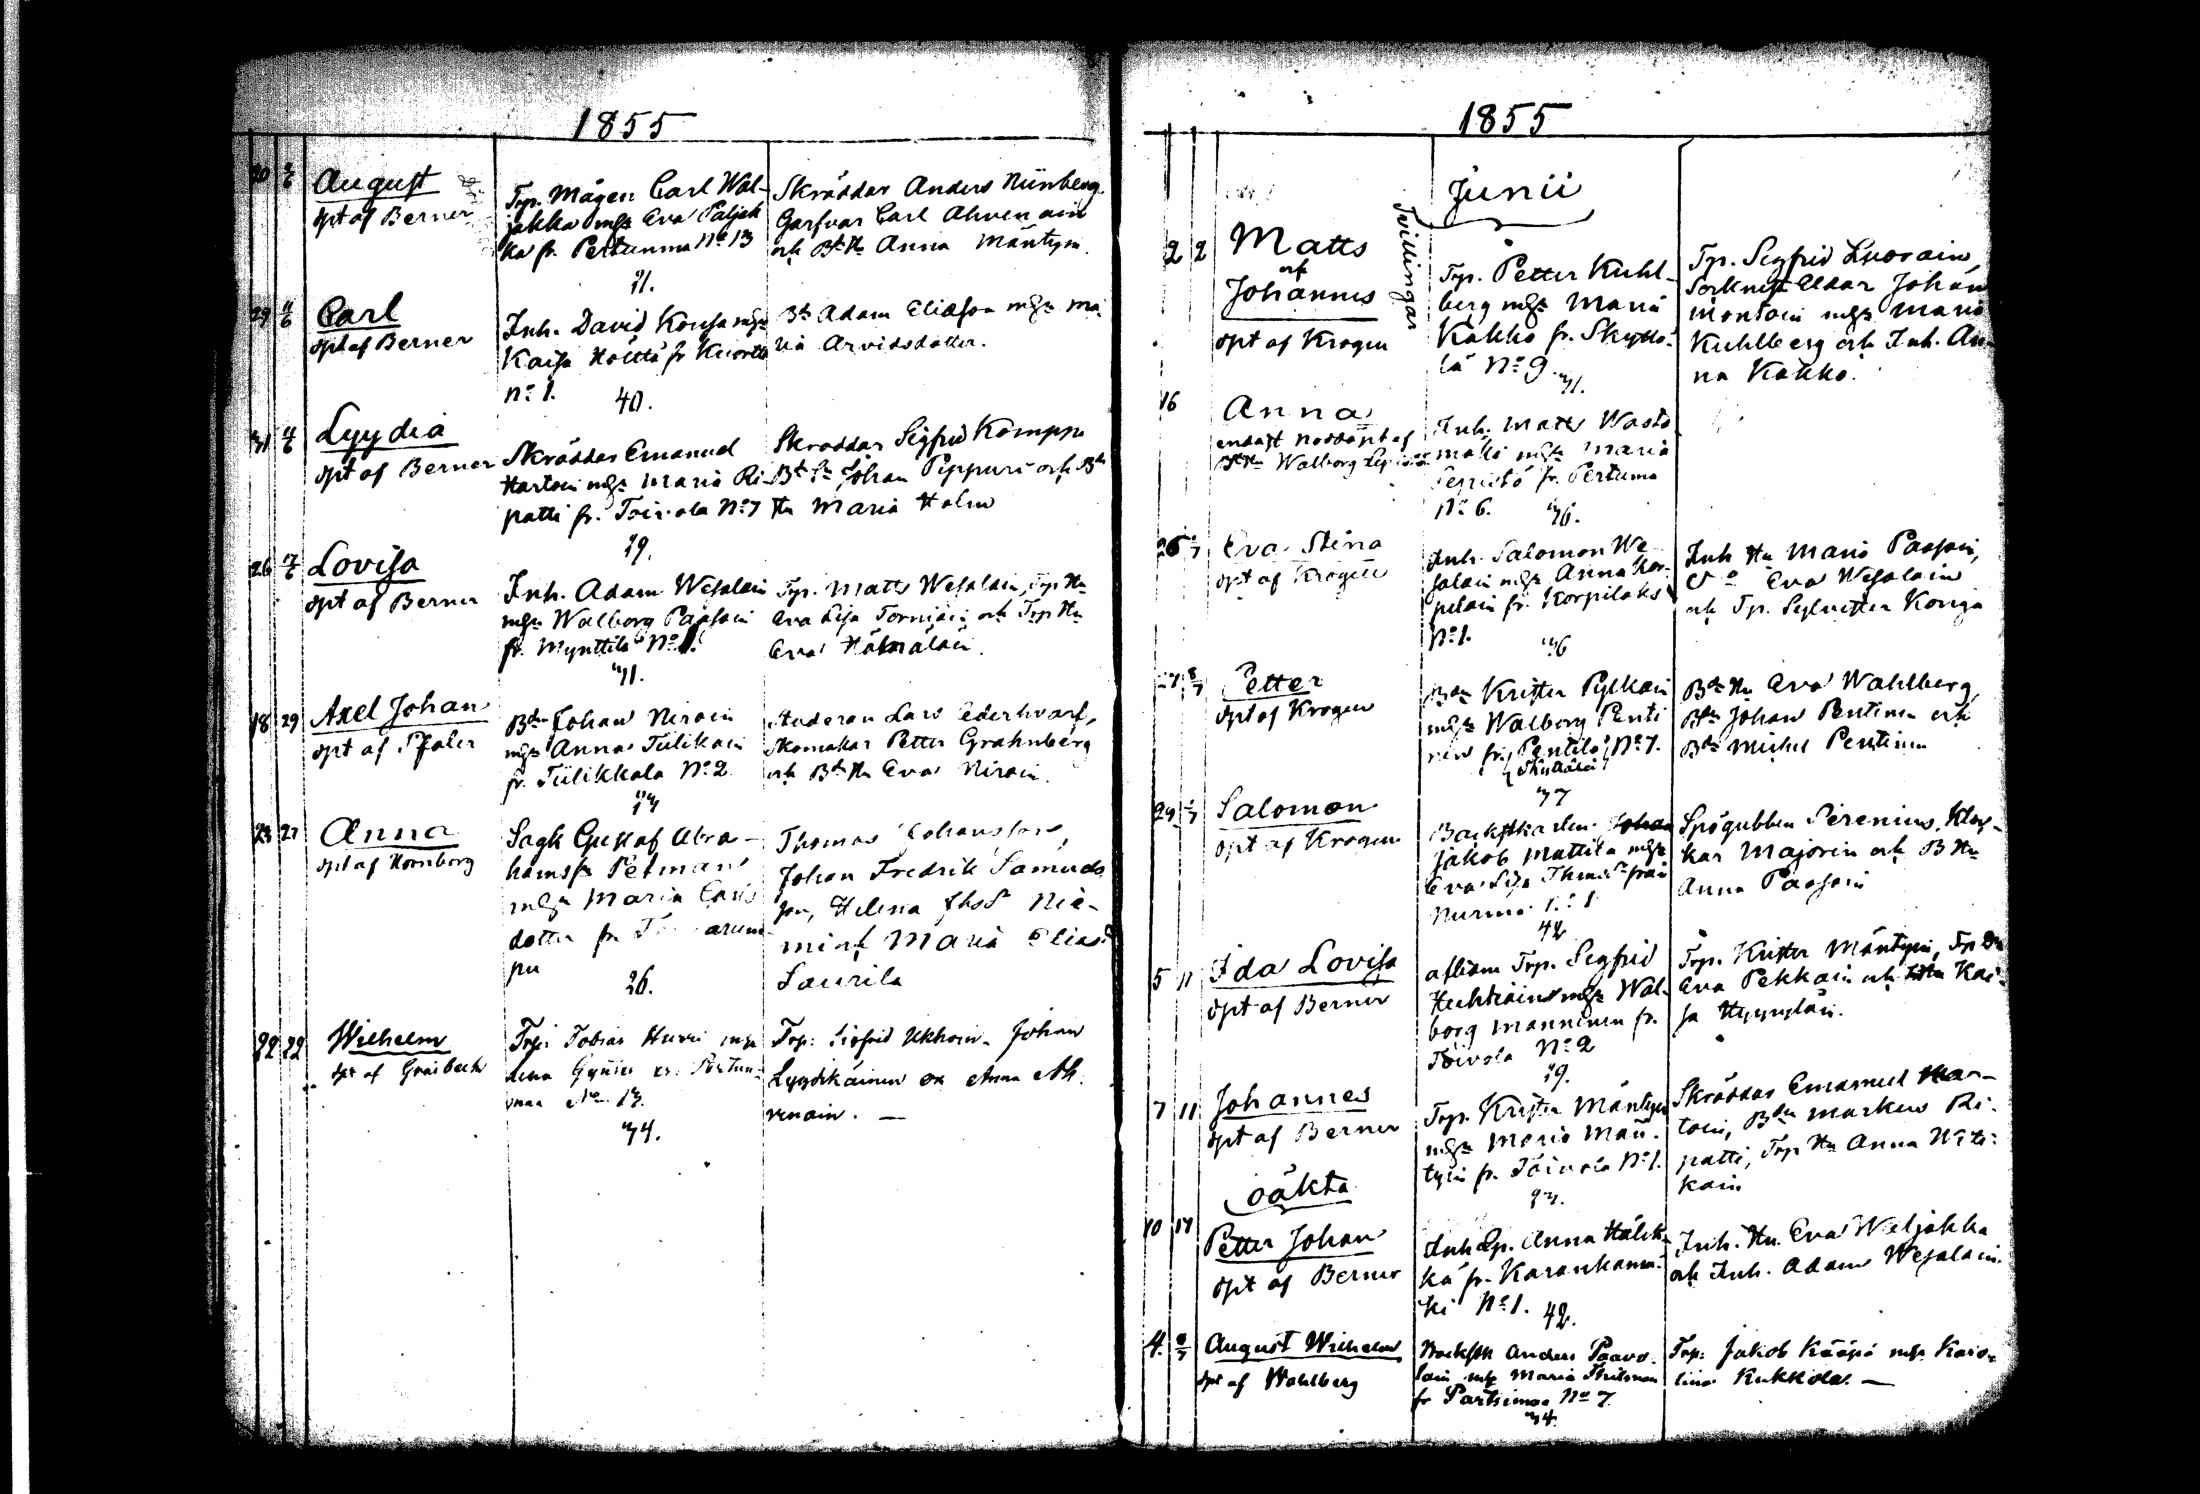 1855
20 2/6 August
döpt af Berner
Torp. Mågen Carl Wal-
jakka m hu Eva Paljak
ka fr. Pertunma No 13
31.
Skräddar Anders Nünberg
Garfvar Carl Ahvenain
och Bd Hu Anna Mäntyin.
29 4/6 Carl
döpt af Berner
Inh. David Kousa m hu
Kaisa Hölttä fr Kuortti
No 1.
40.
Bd Adam Eliasson m hu Ma
ria Arvidsdotter.
31 4/6 Lyydia
döpt af Berner
Skräddar Emanuel
Hartoin m hu Maria Ri
patti fr. Toivola No 7
39.
Skräddar Sigfrid Kamppi
Bd Sn Johan Pippuri och Bd
Hu Maria Holm
26 Lovisa
döpt af Berner
Inh. Adam Wesalain
m hu Walborg Paasoin
fr. Mynttilä No 1.
41.
Trp. Matts Wesalain, Trp Hu
Eva Lisa Torniain och Trp Hu
Eva Hämäläin.
18 29 Axel Johan
döpt af Pfaler
Bdn Johan Niroin
m hu Anna Tiilikain
fr. Tiilikkala No 2
Studeran Lars Cederhvarf,
Skomakar Petter Grahnberg
och Bd Hu Eva Niroin.
23 27 Anna
döpt af Hornborg
Sagk Gustaf Abra-
hamsfs Petman
m hu Maria Carls
dotter fr.
pu
26.
Thomas Johansson,
Johan Fredrik Samuels
son, Helena
Maria Elias
Saurila
22 29 Wilhelm
döpt af Groisbeck
Trp: Tobias Hurri m hu
Lena fr. Pertun-
maa No 13.
34.
Trp: Sigfrid Ukkoin. Johan
Lyydikäinen o. Anna Ah.
venain. —
1855
Junii
2 2 Matts
och
Johannes
Tvillingar
döpt af Krogen
Trp. Petter Kuhl-
berg m hu Maria
Kakko fr. Skyttä-
lä No 9.
31.
Trp. Segfrid Luorain,
Sockne Eldar Johan
Montoin m hu Maria
Kuhlberg och Inh. An-
na Kakko.
16 Anna
endast nöddöpt af
Walborg
Inh. Matts Wasta
mäki m hu Maria
Lepistö fr. Pertuma
No 6. 36.
26 Eva Stina
döpt af Krogen
Inh. Salomon We-
salain m hu Anna Kor-
pelain fr. Korpilaks
No 1. 36
Inh Hu Maria Paasoin,
Do Eva Wesalain
och Tp. Sylvester Konga
Petter
döpt af Krogen
Bdn Krister Pylkäin
m hu Walborg Penti
nen fr. Pentilä No 7.
Skyttälä
37
Bd Hu Eva Wahlberg,
Bdn Johan Pentinen och
Bdn Michel Pentinen
29 Salomon
döpt af Krogen
Backstkarlen Johan
Jakob Mattila m hu
Eva Lisa från
Nurmaa No 1
42
Spögubben Serenius, Kloc-
kar Majorin och B Hu
Anna Paasoin
5 11 Ida Lovisa
döpt af Berner
aflidm Trp. Segfrid
Huhtiäin m hu Wal-
borg Manninen fr.
Toivola No 2
39.
Trp. Krister Mäntyin, Trp Dr
Eva Pekkain och Kai-
sa Hyyryläin.
7 11 Johannes
döpt af Berner
Trp. Krister Mäntyin
m hu Maria Män-
tyin fr. Toivola No 1.
33.
Skräddar Emanuel Har-
toin, Bdn Markus Ri-
patti, Trp Hu Anna Wäti-
kain
oäkta
10 17 Petter Johan
döpt af Berner
Inh Dp. Anna Hälik-
kä fr. Karankamä-
ki No 1. 42.
Inh. Hu. Eva Weljakka
och Inh. Adam Wesalain.
4. 8/7 August Wilhelm
döpt af Wahlberg
Backstk Anders Paavo-
lain m hu Maria
fr Partsimaa No 7.
34.
Trp: Jakob Kääpä m hu Karo-
lina Kukkola. —